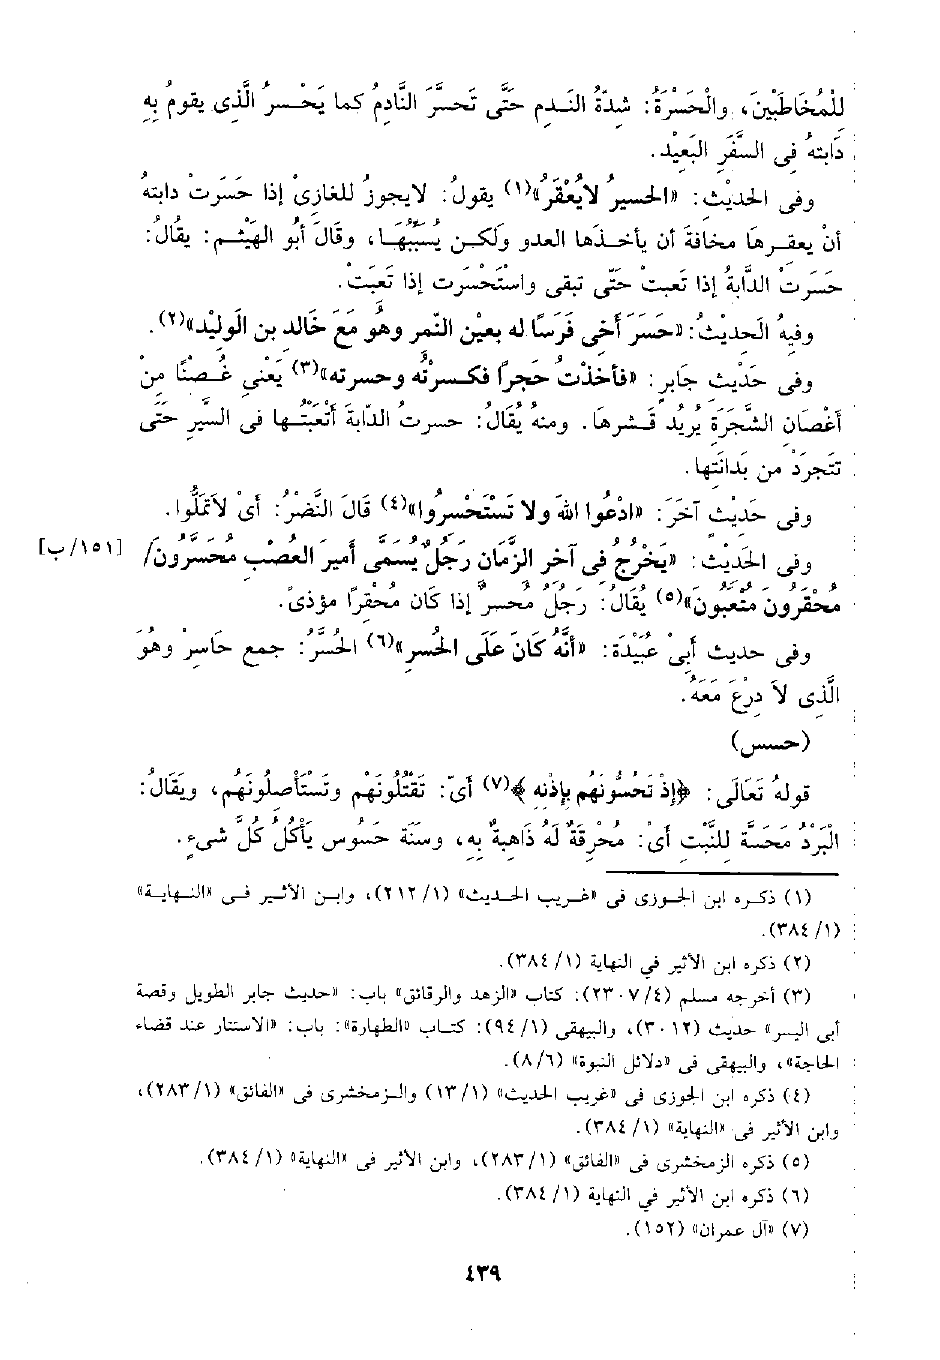 للْمُخَاطَبْينَ، والْحَسْرَةُ: شدَّةُ النَّدمِ حتَّى تَحسَّرَ النَّادِمُ كما يَحْسرُ الَّذى يقومُ بِهِ
دَابتهُ فِى السَّفَرِ البَعيْد.
وفى الحَديْث: «الحسيرُ لايُعْقَرُ»(١) يقولُ: لايجوزُ للغازىْ إذا حَسَرتْ دابتهُ
أنْ يعقرهَا مخافةَ أن يأخذَها العدو ولكن يُسيِّبُهَا، وقالَ أبُو الهَيْثم: يقالُ:
حَسَرتْ الدَّابةُ إذا تَعبتْ حَتّى تبقى واسْتَحْسَرت إذا تَعبَتْ.
وفيهُ الحَديثُ: «حَسَرَ أخى فَرَسًا له بعيْن النَّمر وهُو مَعَ خَالد بن الوَليْد»(٢).
وفى حَديْث جابر: «فأخَذْتُ حَجراً فكسرتُه وحسرته»(٣) يَعْني غُصنًا منْ
أغْصَان الشَّجَرَة يُريْدُ قشرهَا. ومنهُ يُقَالُ: حسرتُ الدَّابةَ أتْعَبْتُها فى السَّير حَتَّى
تتجردْ من بَدَانَتِها.
وفى حَديْث آخَرَ: «ادْعُوا اللهَ ولا تَسْتَحْسرُوا»(٤) قَالَ النَّضْرُ: أىْ لاَتمَلُّوا.
وفى الحَديْث: «يَخْرُجُ فى آخر الزَّمَان رَجُلٌ يُسمَّى أميرَ العصب مُحَسرُونَ/ [١٥١/ب]
مُحْقَرُونَ مُتْعَبُونَ»(٥) يُقَالُ: رَجُلٌ مُحسرٌ إذَا كَانَ مُحْقرًا مؤذىْ.
وفى حَديث أبىْ عُبَيْدَة: «أنَّهُ كَانَ عَلَى الحُسر»(٦) الحُسَّرُ: جمع حَاسرْ وهُوَ
الَّذى لاَ درْعَ مَعَهُ.
(حسس)
قولهُ تَعَالَى: ﴿إذْ تَحُسُّونَهُم بإذْنه﴾(٧) أىّ: تَقْتُلُونَهُمْ وتَسْتَأصلُونَهُم، ويُقَالُ:
الْبَرْدُ مَحَسَّة للنَّبْت أىْ: مُحْرِقَةٌ لَهُ ذَاهِبةٌ به، وسنَة حَسُوس يَأكُلُ كُلَّ شىء.
(١) ذكره ابن الجوزى فى «غريب الحديث» (٢١٢/١)، وابن الأثير فى «النهاية»
(٣٨٤/١).
(٢) ذكره ابن الأثير في النهاية (٣٨٤/١).
(٣) أخرجه مسلم (٢٣٠٧/٤): كتاب «الزهد والرقائق» باب: «حديث جابر الطويل وقصة
أبى اليسر» حديث (٣٠١٢)، والبيهقى (٩٤/١): كتاب «الطهارة»: باب: «الاستتار عند قضاء
الحاجة»، والبيهقى فى «دلائل النبوة» (٨/٦).
(٤) ذكره ابن الجوزى فى «غريب الحديث» (١٣/١) والزمخشرى فى «الفائق» (٢٨٣/١)،
وابن الأثير فى «النهاية» (٣٨٤/١).
(٥) ذكره الزمخشرى فى «الفائق» (٢٨٣/١)، وابن الأثير فى «النهاية» (٣٨٤/١).
(٦) ذكره ابن الأثير في النهاية (٣٨٤/١).
(٧) «آل عمران» (١٥٢).
٤٣٩